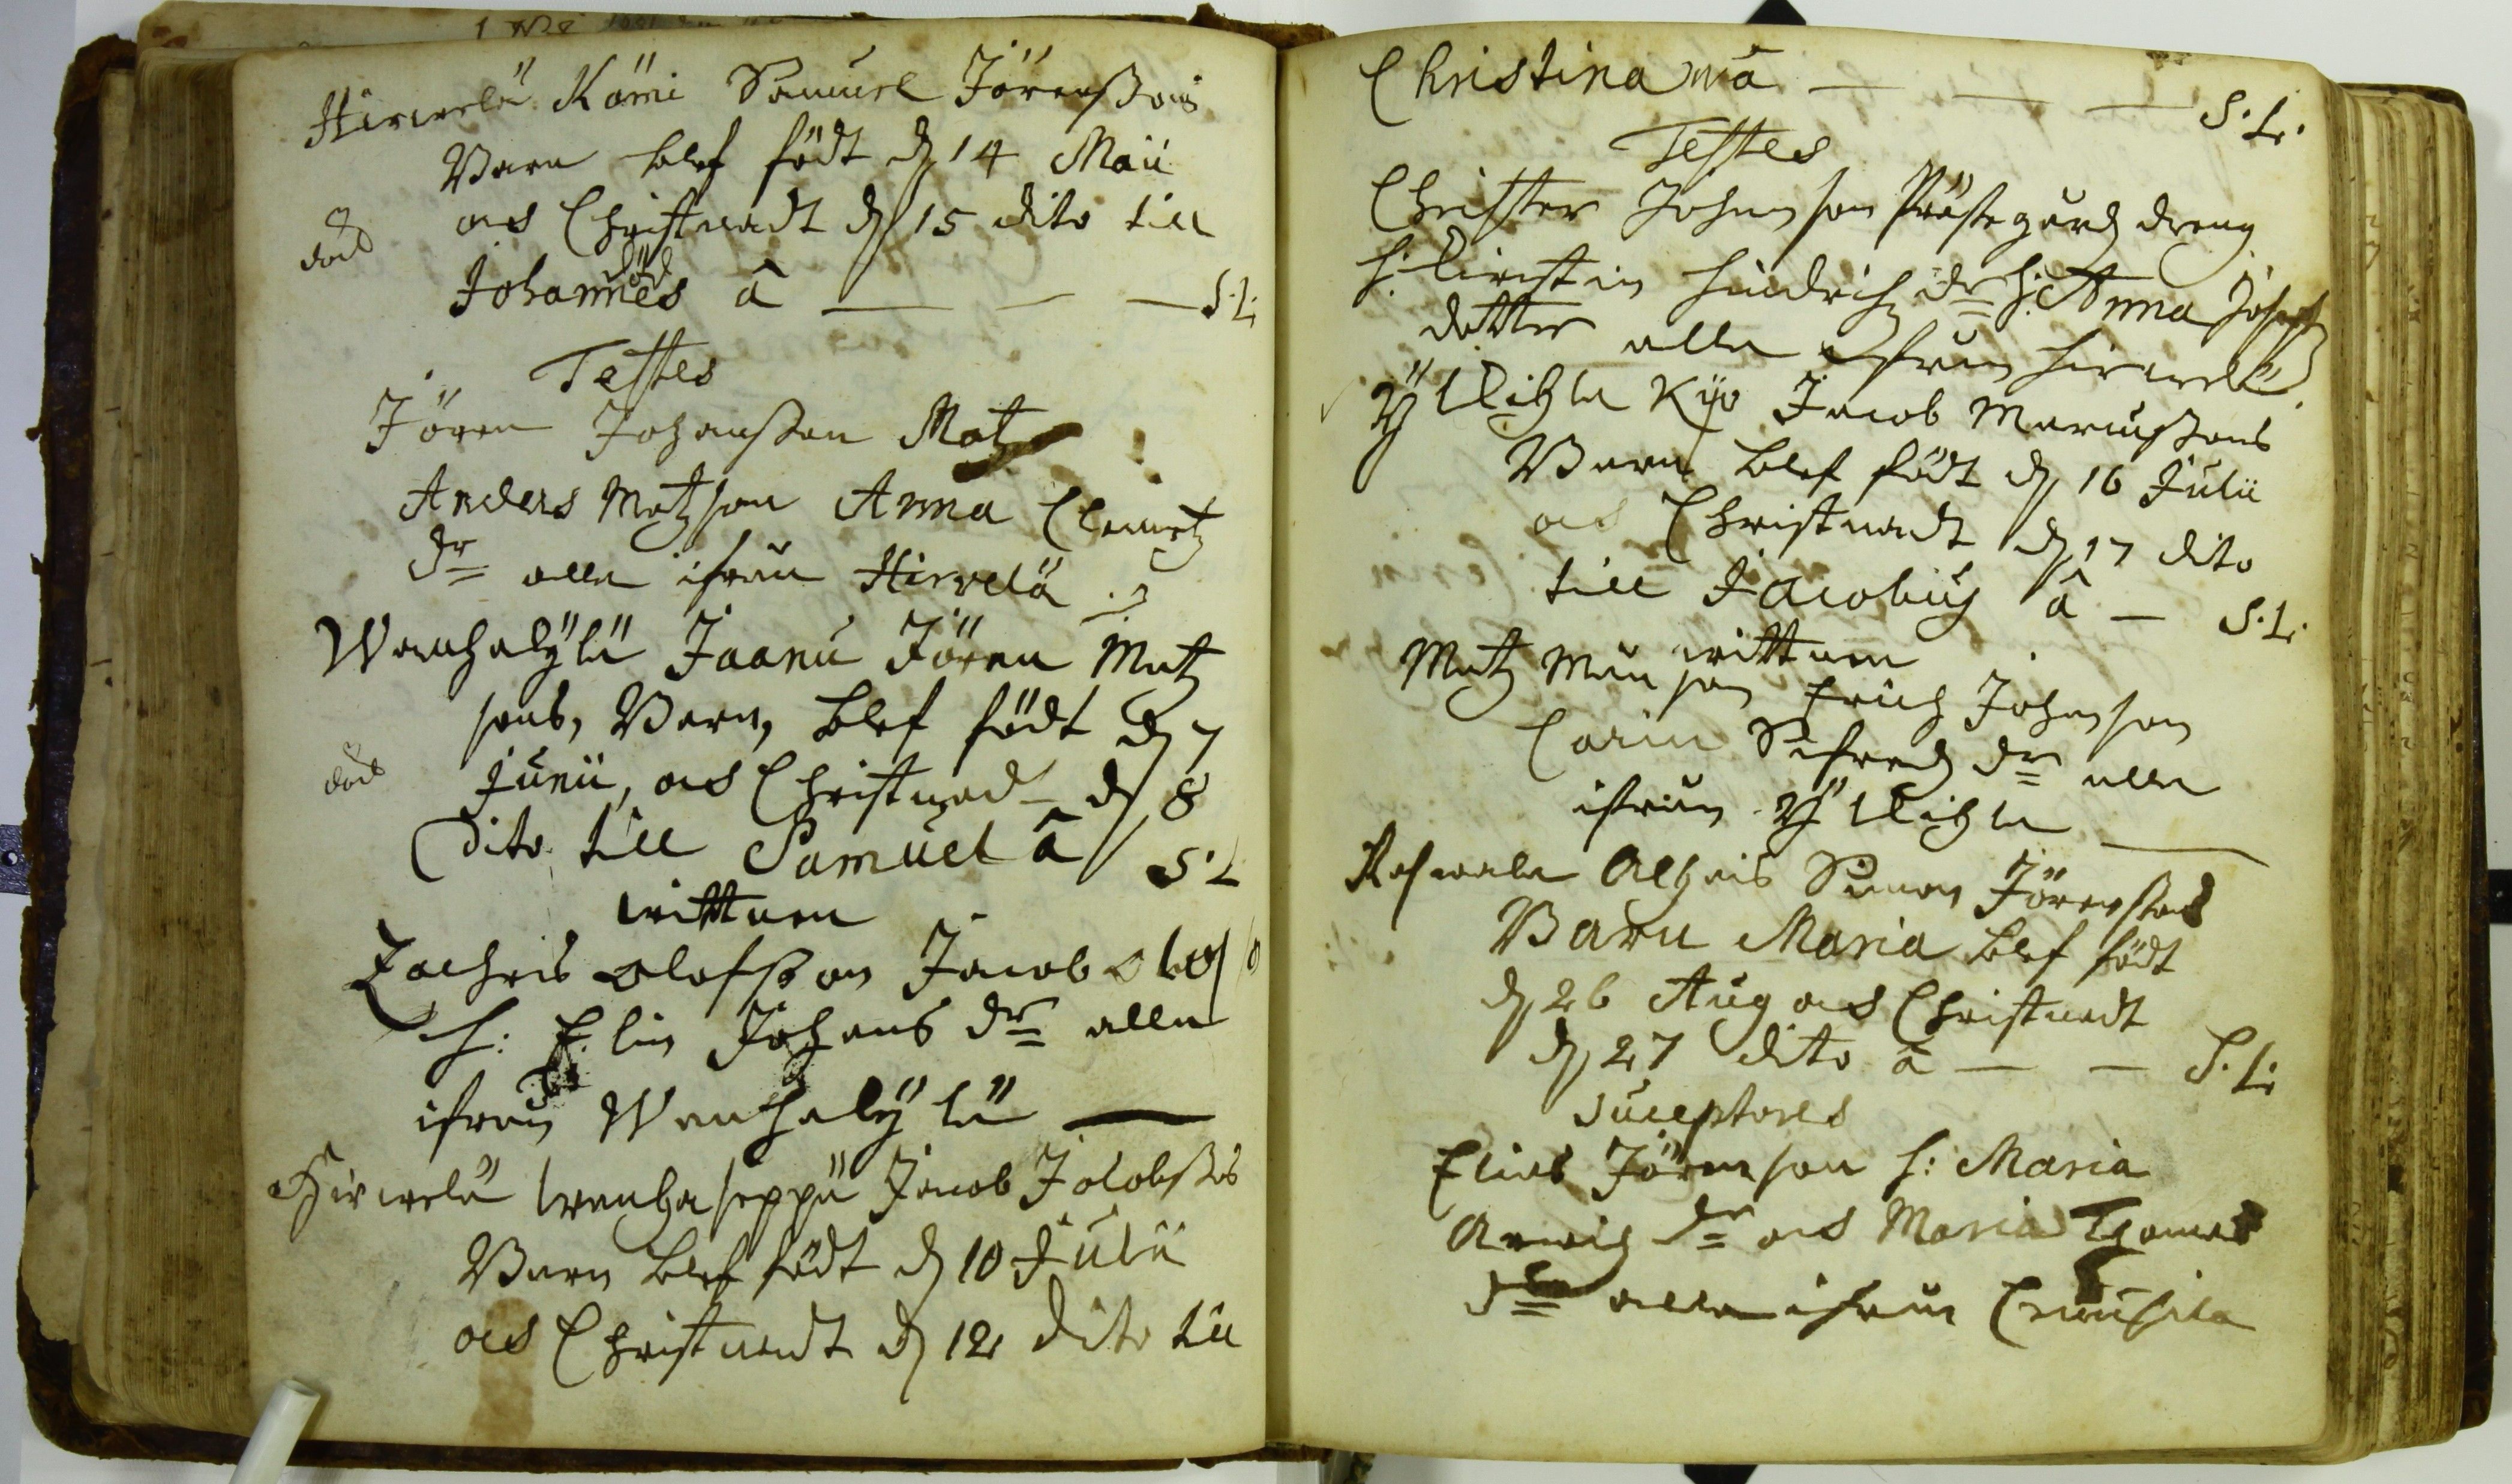 Hirwelä Kömi Samuel Jörenßons
Barn blef födt d 14 Maii
ock Christnadt d 15 dito till
död
död
Johannes â — — — S.L.
Testes
Jören Johanßon Matz
Anders Matzson Anna Clemetz
dr alla ifrån Hirvelä
Wanhakylä Jaanu Jören Matz
sons, Barn, blef födt d 7
död
Junii, ock Christnad d 8
dito till Samuel â S.L.
wittnen
Zachris Olofßon Jacob Olofs
h: Elin Johans dr alla
ifrån Wanhakylä —
Hirwelä wanhaseppä Jacob Jacobßons
Barn blef födt d 10 Julii
ock Christnadt d 12 dito till
Christina â — — — S.L.
Testes
Christer Johanson Prästegårdz dräng
h: Kirstin Hindrichz dr h: Anna Josephs
dotter alla ifrån Hirwelä
Yllikylä Kijo Jacob Marcußons
Barn blef födt d 16 Julii
ock Christnadt d 17 dito
till Jacobus â — S.L.
wittnen
Matz Månson Erich Johanson
Carin Sifredz dr alla
ifrån Yllikylä —
Simon Jörenßons
Barn Maria blef födt
d 26 Aug ock Christnadt
d 27 dito â — — S.L.
Suceptores
Elias Jörenson h: Maria
dr ock Maria Thomas
dr alla ifrån